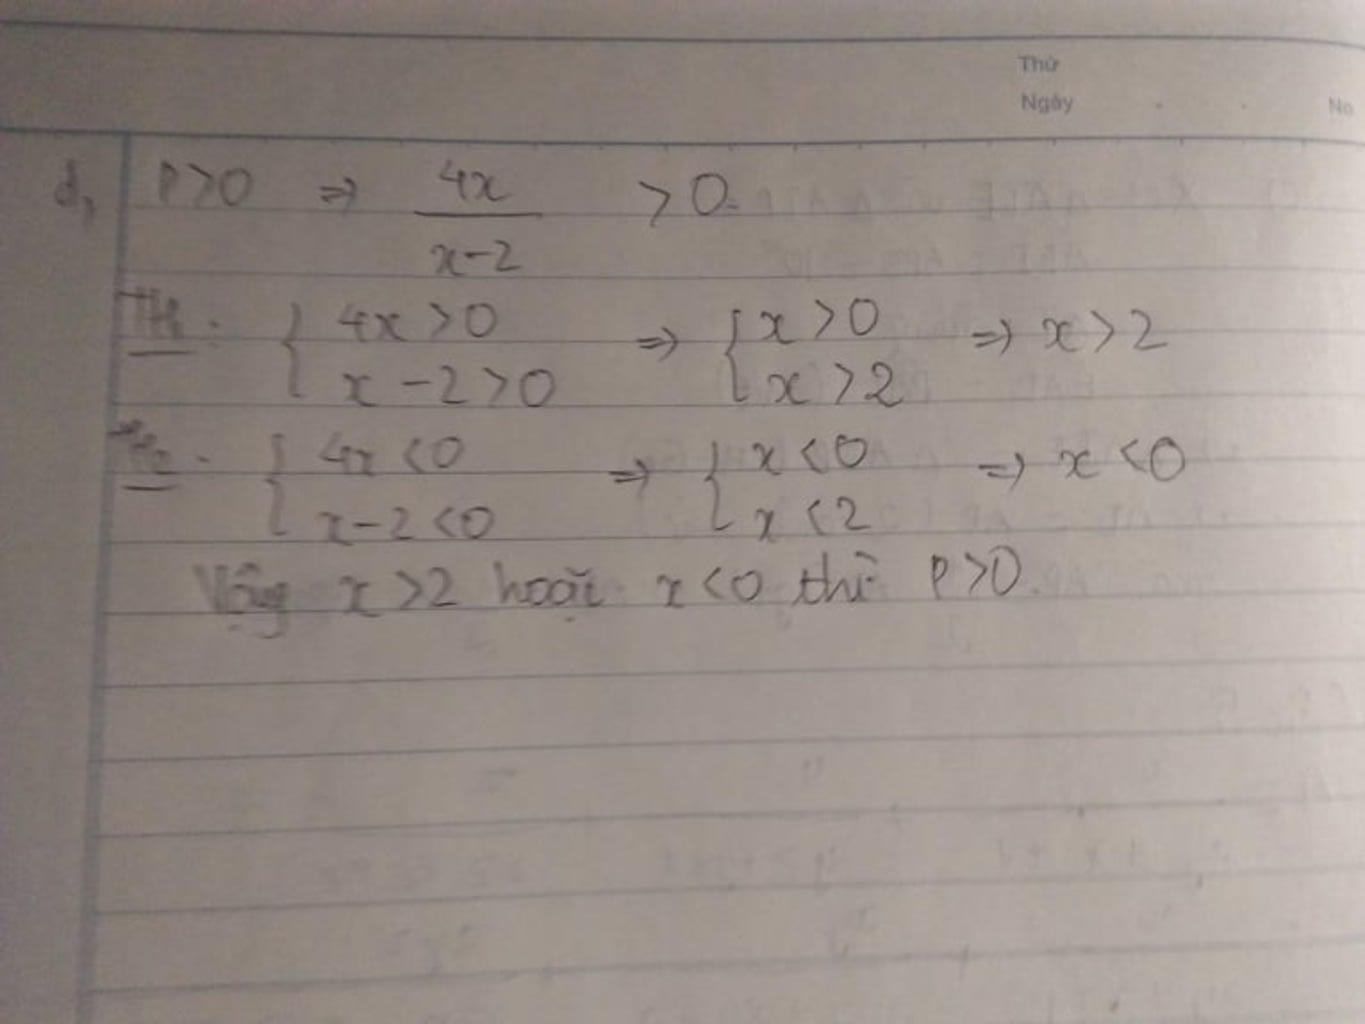 Thứ
Ngày . . No
d, P>0 => 4x/(x-2) >0.
TH1: { 4x>0 => { x>0 => x>2
x-2>0 x>2
TH2. { 4x<0 => { x<0 => x<0
x-2<0 x<2
Vậy x>2 hoặc x<0 thì P>0